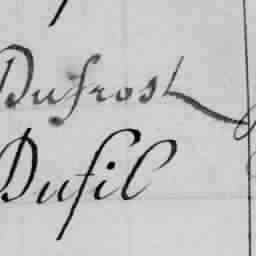 Dufrost
Dufil